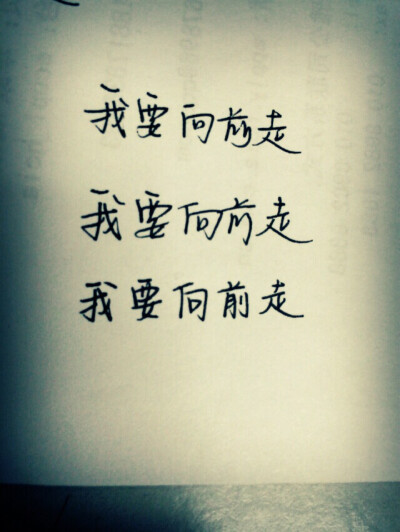 我要向前走
我要向前走
我要向前走